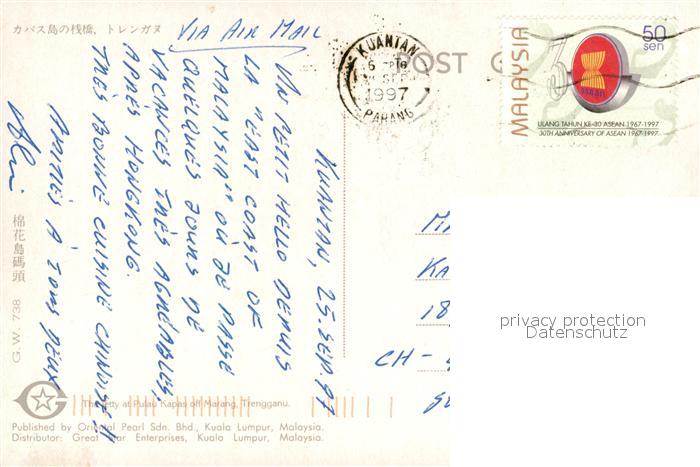 カパス島の桟橋、トレンガヌ
VIA AIR MAIL
KUANTAN
1997
PAHANG
POST
MALAYSIA
50
sen
30
ASEAN
ULANG TAHUN KE-30 ASEAN 1967-1997
30TH ANNIVERSARY OF ASEAN 1967-1997
KUANTAN, 25.SEP.97
UN PETIT HELLO DEPUIS
LA "EAST COAST OF
MALAYSIA" OÙ JE PASSE
QUELQUES JOURS DE
VACANCES TRÈS AGRÉABLES,
APRÈS HONGKONG.
TRÈS BONNE CUISINE CHINOISE!!
AMITIÉS À TOUS DEUX
棉花島碼頭
G.W. 738
KA
18
CH -
privacy protection
Datenschutz
The jetty at Pulau Kapas off Marang, Trengganu.
Published by Oriental Pearl Sdn. Bhd., Kuala Lumpur, Malaysia.
Distributor: Great Star Enterprises, Kuala Lumpur, Malaysia.